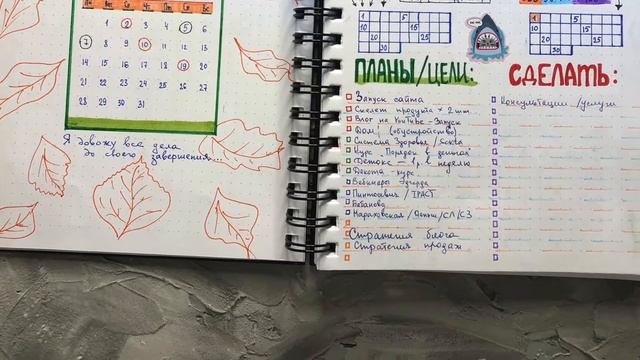 Пн Вт Ср Чт Пт Сб Вс
1 2 3 4 5 6
7 8 9 10 11 12 13
14 15 16 17 18 19 20
21 22 23 24 25 26 27
28 29 30 31
Я довожу все дела
до своего завершения...
5
10 15
20 25
30
1 5
10 15
20 25
30
ПЛАНЫ/ЦЕЛИ:
СДЕЛАТЬ:
Запуск сайта
Скелет продукта × 2 шт.
Влог на YouTube - Запуск
Дом! (обустройство)
Система Здоровье /
Курс "Порядок в деньгах"
Детокс - 1 р. в неделю
курс
Вебинары
/ ТРАСТ
/ СЛ / СЗ
Стратегия блога
Стратегия продаж
Консультации / услуги